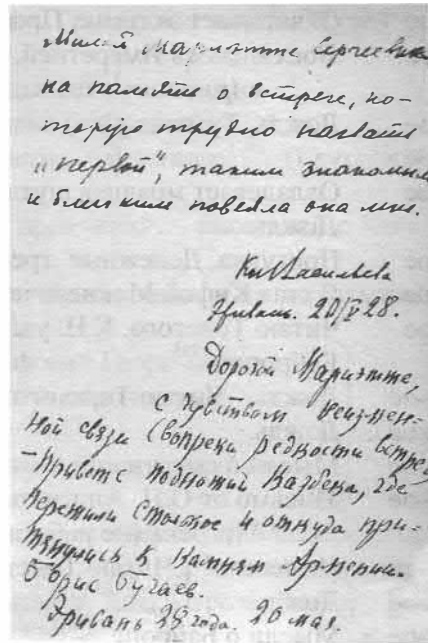 Милой Мариэтте Сергеевне
на память о встрече, ко-
торую трудно назвать
„первой", таким знакомым
и близким повеяла она мне.
Кл Васильева
Эривань. 20/V 28.
Дорогой Мариэтте,
с чувством неизмен-
ной связи (вопреки редкости встреч)
– Привет с подножий Казбека, где
пережили и откуда при-
тянулись к камням Армении.
Борис Бугаев.
Эривань 28 года. 20 мая.